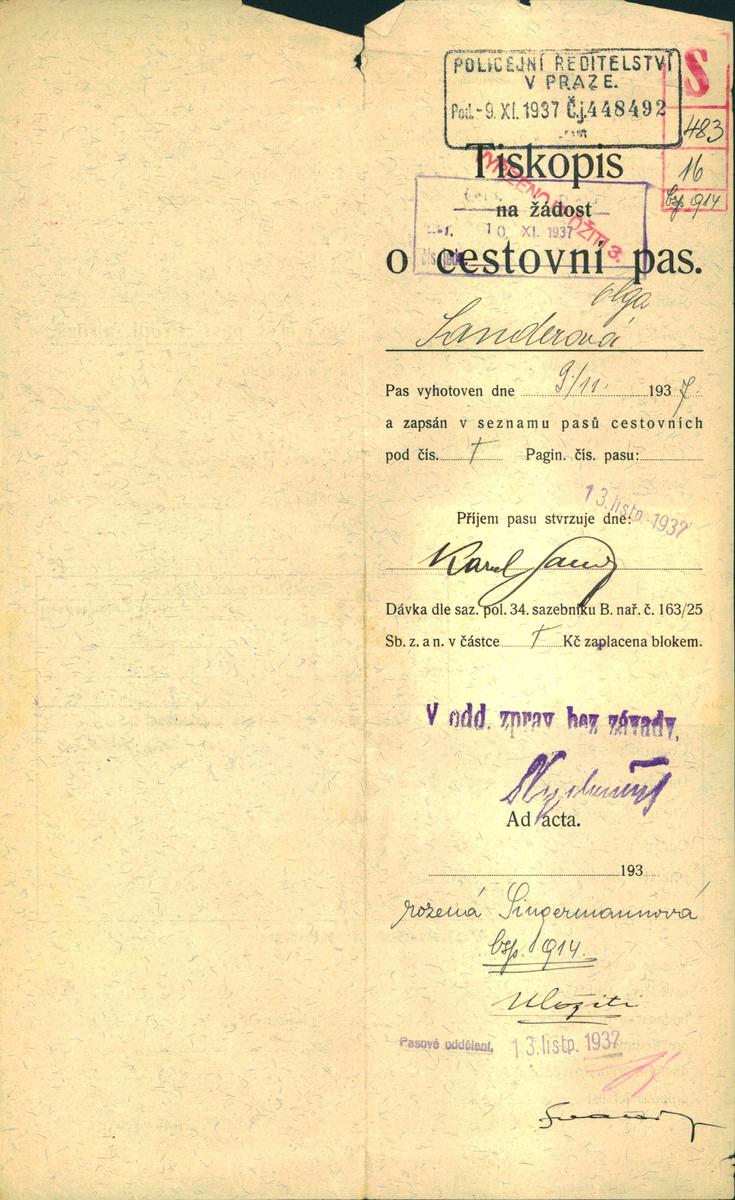 POLICEJNÍ ŘEDITELSTVÍ
V PRAZE.
Pod. -9. XI. 1937 Č.j. 448492
S
483
16
bsp 914
Tiskopis
na žádost
VYŘÍZENO ULOŽITI 3.
10. XI. 1937
o cestovní pas.
Olga
Sanderová
Pas vyhotoven dne 9/11. 1937
a zapsán v seznamu pasů cestovních
pod čís. † Pagin. čís. pasu:
13. listp. 1937
Příjem pasu stvrzuje dne:
Karel
Dávka dle saz. pol. 34. sazebníku B. nař. č. 163/25
Sb. z. a n. v částce † Kč zaplacena blokem.
V odd. zpráv bez závady,
Ad acta.
193
rozená Singermannová
bsp. 914.
Uložiti
Pasové oddělení, 13. listp. 1937